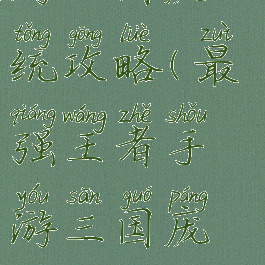 tǒng gōng lüè zuì
统攻略(最
qiáng wáng zhě shǒu
强王者手
yóu sān guó páng
游三国庞